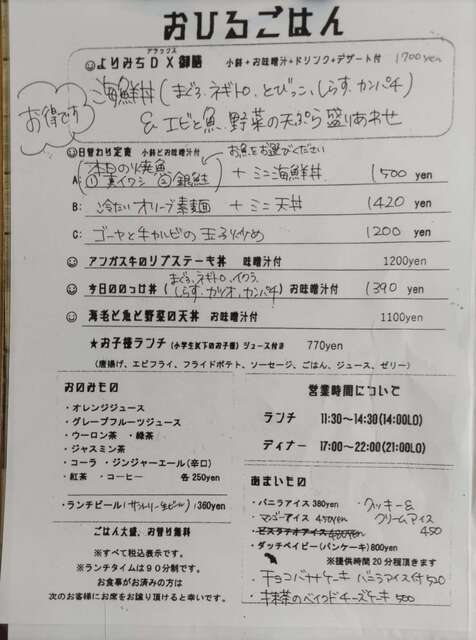 おひるごはん
デラックス
よりみちDX御膳 小鉢+お味噌汁+ドリンク+デザート付 1700yen
お得です
海鮮丼(まぐろ、ネギトロ、とびっこ、しらす、カンパチ)
& エビと魚、野菜の天ぷら盛りあわせ
日替わり定食 小鉢とお味噌汁付 お魚をお選びください
A: (本日の焼魚 ①真イワシ ②銀鮭) + ミニ海鮮丼 1500 yen
B: 冷たいオリーブ素麺 + ミニ天丼 1420 yen
C: ゴーヤと牛カルビの玉子炒め 1200 yen
アンガス牛のリブステーキ丼 味噌汁付 1200yen
今日ののっけ丼 (まぐろ、ネギトロ、イクラ、しらす、カツオ、カンパチ) お味噌汁付 1390 yen
海老と魚と野菜の天丼 お味噌汁付 1100yen
★お子様ランチ(小学生以下のお子様) ジュース付き 770yen
(唐揚げ、エビフライ、フライドポテト、ソーセージ、ごはん、ジュース、ゼリー)
おのみもの
・オレンジジュース
・グレープフルーツジュース
・ウーロン茶 ・緑茶
・ジャスミン茶
・コーラ ・ジンジャーエール(辛口)
・紅茶 ・コーヒー 各250yen
・ランチビール(サントリー生ビール)360yen
ごはん大盛、お替り無料
※すべて税込表示です。
※ランチタイムは90分制です。
お食事がお済みの方は
次のお客様にお席をお譲り頂けると幸いです。
営業時間について
ランチ 11:30~14:30(14:00LO)
ディナー 17:00~22:00(21:00LO)
あまいもの
・バニラアイス 380yen
・マンゴーアイス 450yen
・ピスタチオアイス 450yen
・クッキー&
クリームアイス
450
・ダッチベイビー(パンケーキ)800yen
※提供時間20分程頂きます
・チョコバナナケーキ バニラアイス付 520
・抹茶のベイクドチーズケーキ 500